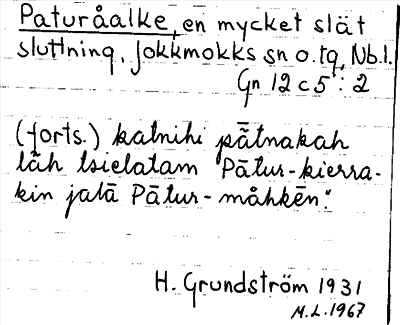 Paturåalke, en mycket slät
sluttning. Jokkmokks sn o. tg, Nb.l.
Gn 12 c 5 : 2
(forts.) katnihi pātnakah
lāh tsielatam Pātur-kierra-
kin jatā Pātur-måhkēn."
H. Grundström 1931
M.L. 1967